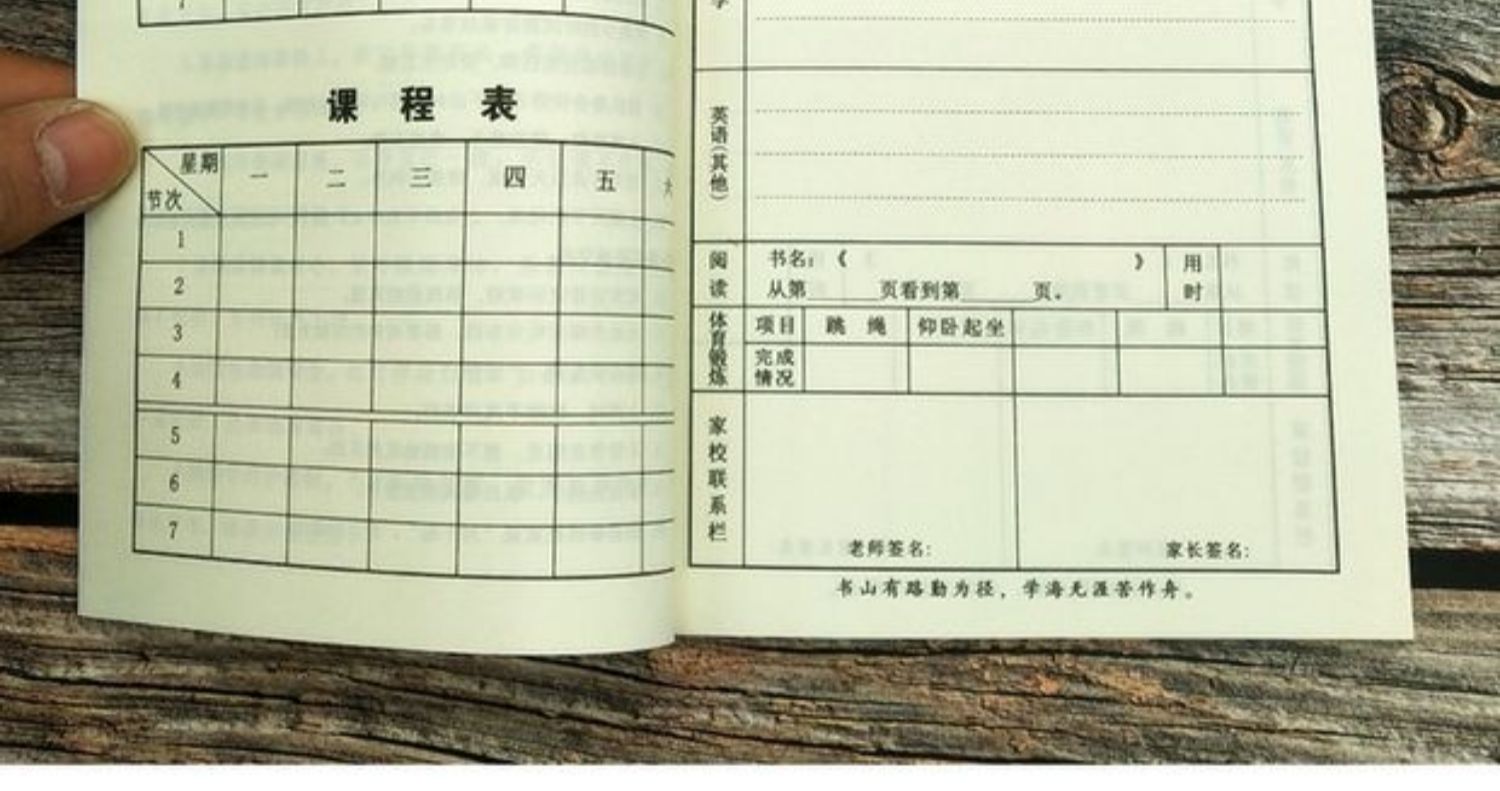 7
课程表
星期 一 二 三 四 五
节次
1
2
3
4
5
6
7
学
英语(其他)
阅读
书名:《 》
从第 页看到第 页。
用时
体育锻炼
项目 跳绳 仰卧起坐
完成情况
家校联系栏
老师签名: 家长签名:
书山有路勤为径,学海无涯苦作舟。